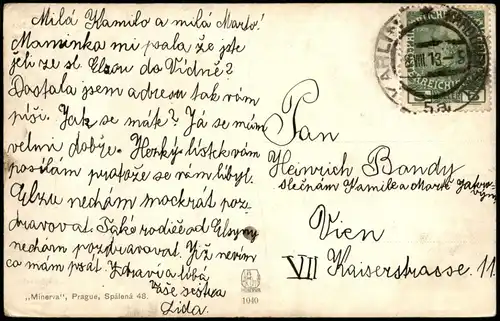 Milá Kamilo a milá Marto!
Maminka mi psala že jste
jeli ze sl. Elzou do Vídně?
Dostala jsem adresu tak vám
píši. Jak se máte? Já se mám
velmi dobře. Hezký lístek vám
posílám protože se vám líbyl.
Elzu nechám mockrát poz-
dravovat. Také rodiče od Elzyny
nechám pozdravovat. Již nevím
co mám psát. Zdraví a líbá
Vaše sestra
Lida.
„Minerva", Prague, Spálená 48.
1040
KARLÍN
13
5
Pan
Heinrich Bandy
slečnám Kamile a Martě
Vien
VII Kaiserstrasse 11